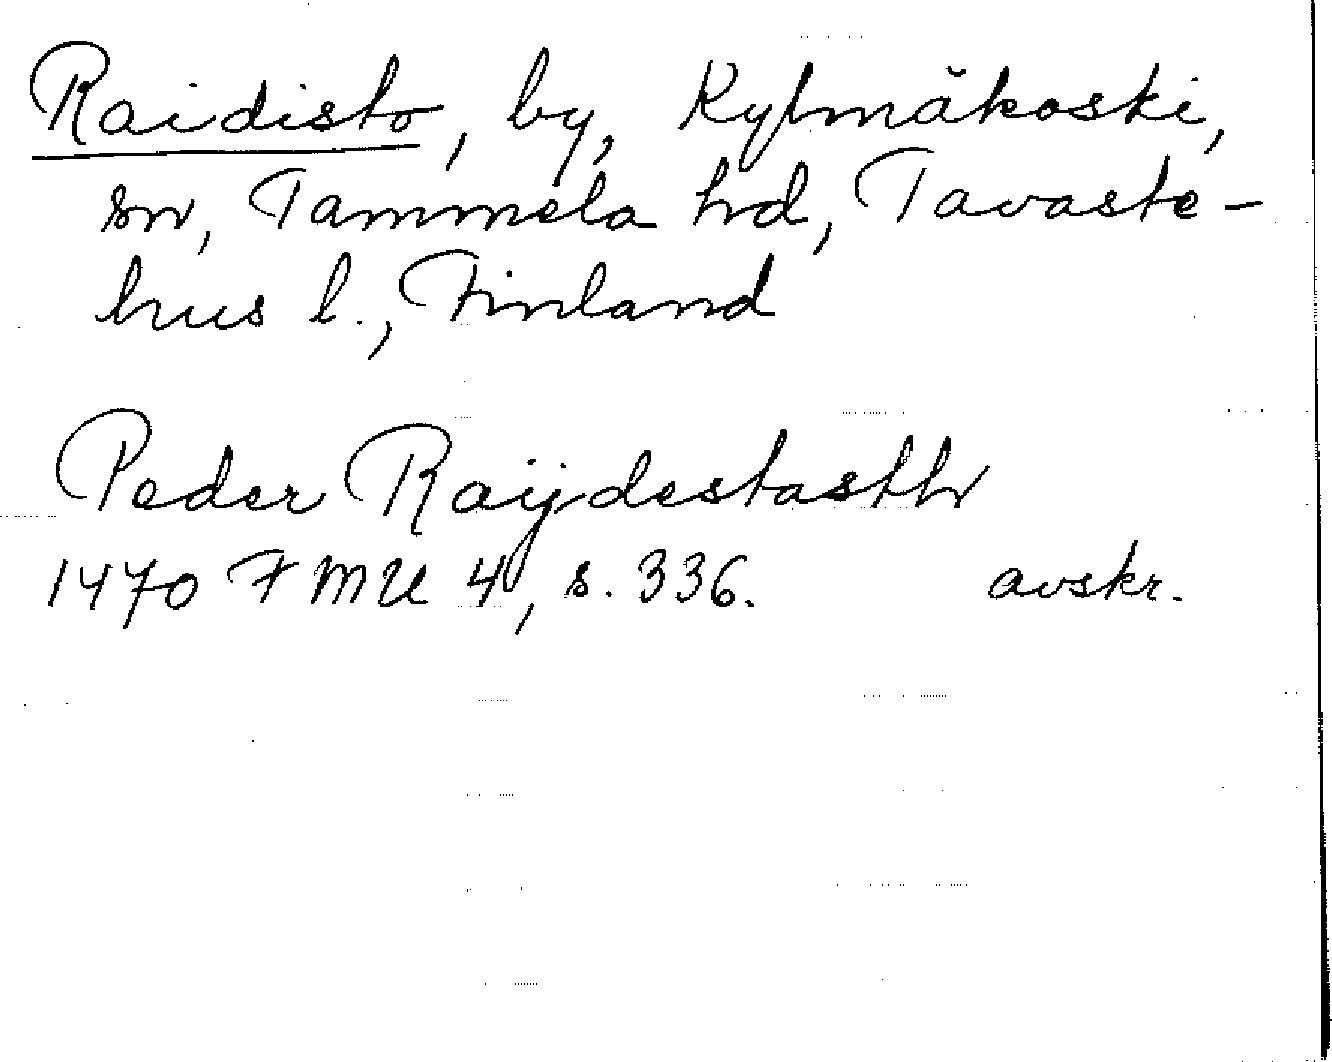 Raidisto, by, Kylmäkoski,
sn, Tammela hd, Tavaste-
hus l., Finland
Peder Raijdestasth
1470 FMU 4, s. 336. avskr.